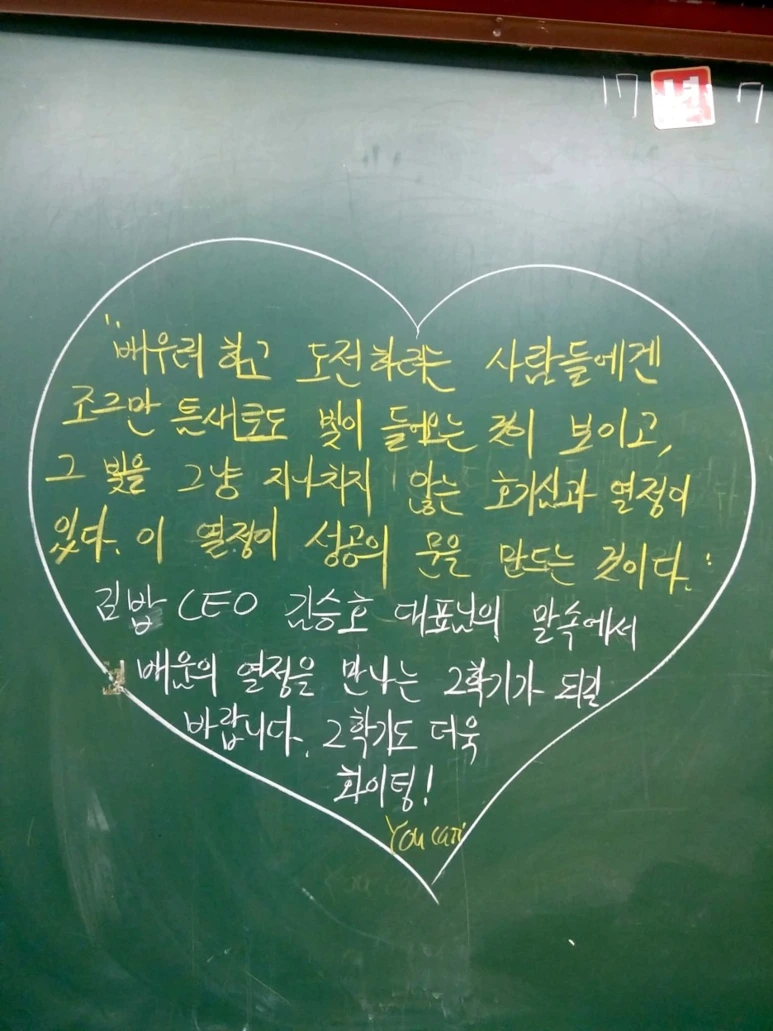 17 년 7
"배우려 하고 도전하려는 사람들에겐
조그만 틈새로도 빛이 들어오는 것이 보이고,
그 빛을 그냥 지나치지 않는 호기심과 열정이
있다. 이 열정이 성공의 문을 만드는 것이다."
김밥 CEO 김승호 대표님의 말속에서
배움의 열정을 만나는 2학기가 되길
바랍니다. 2학기도 더욱
화이팅!
You can